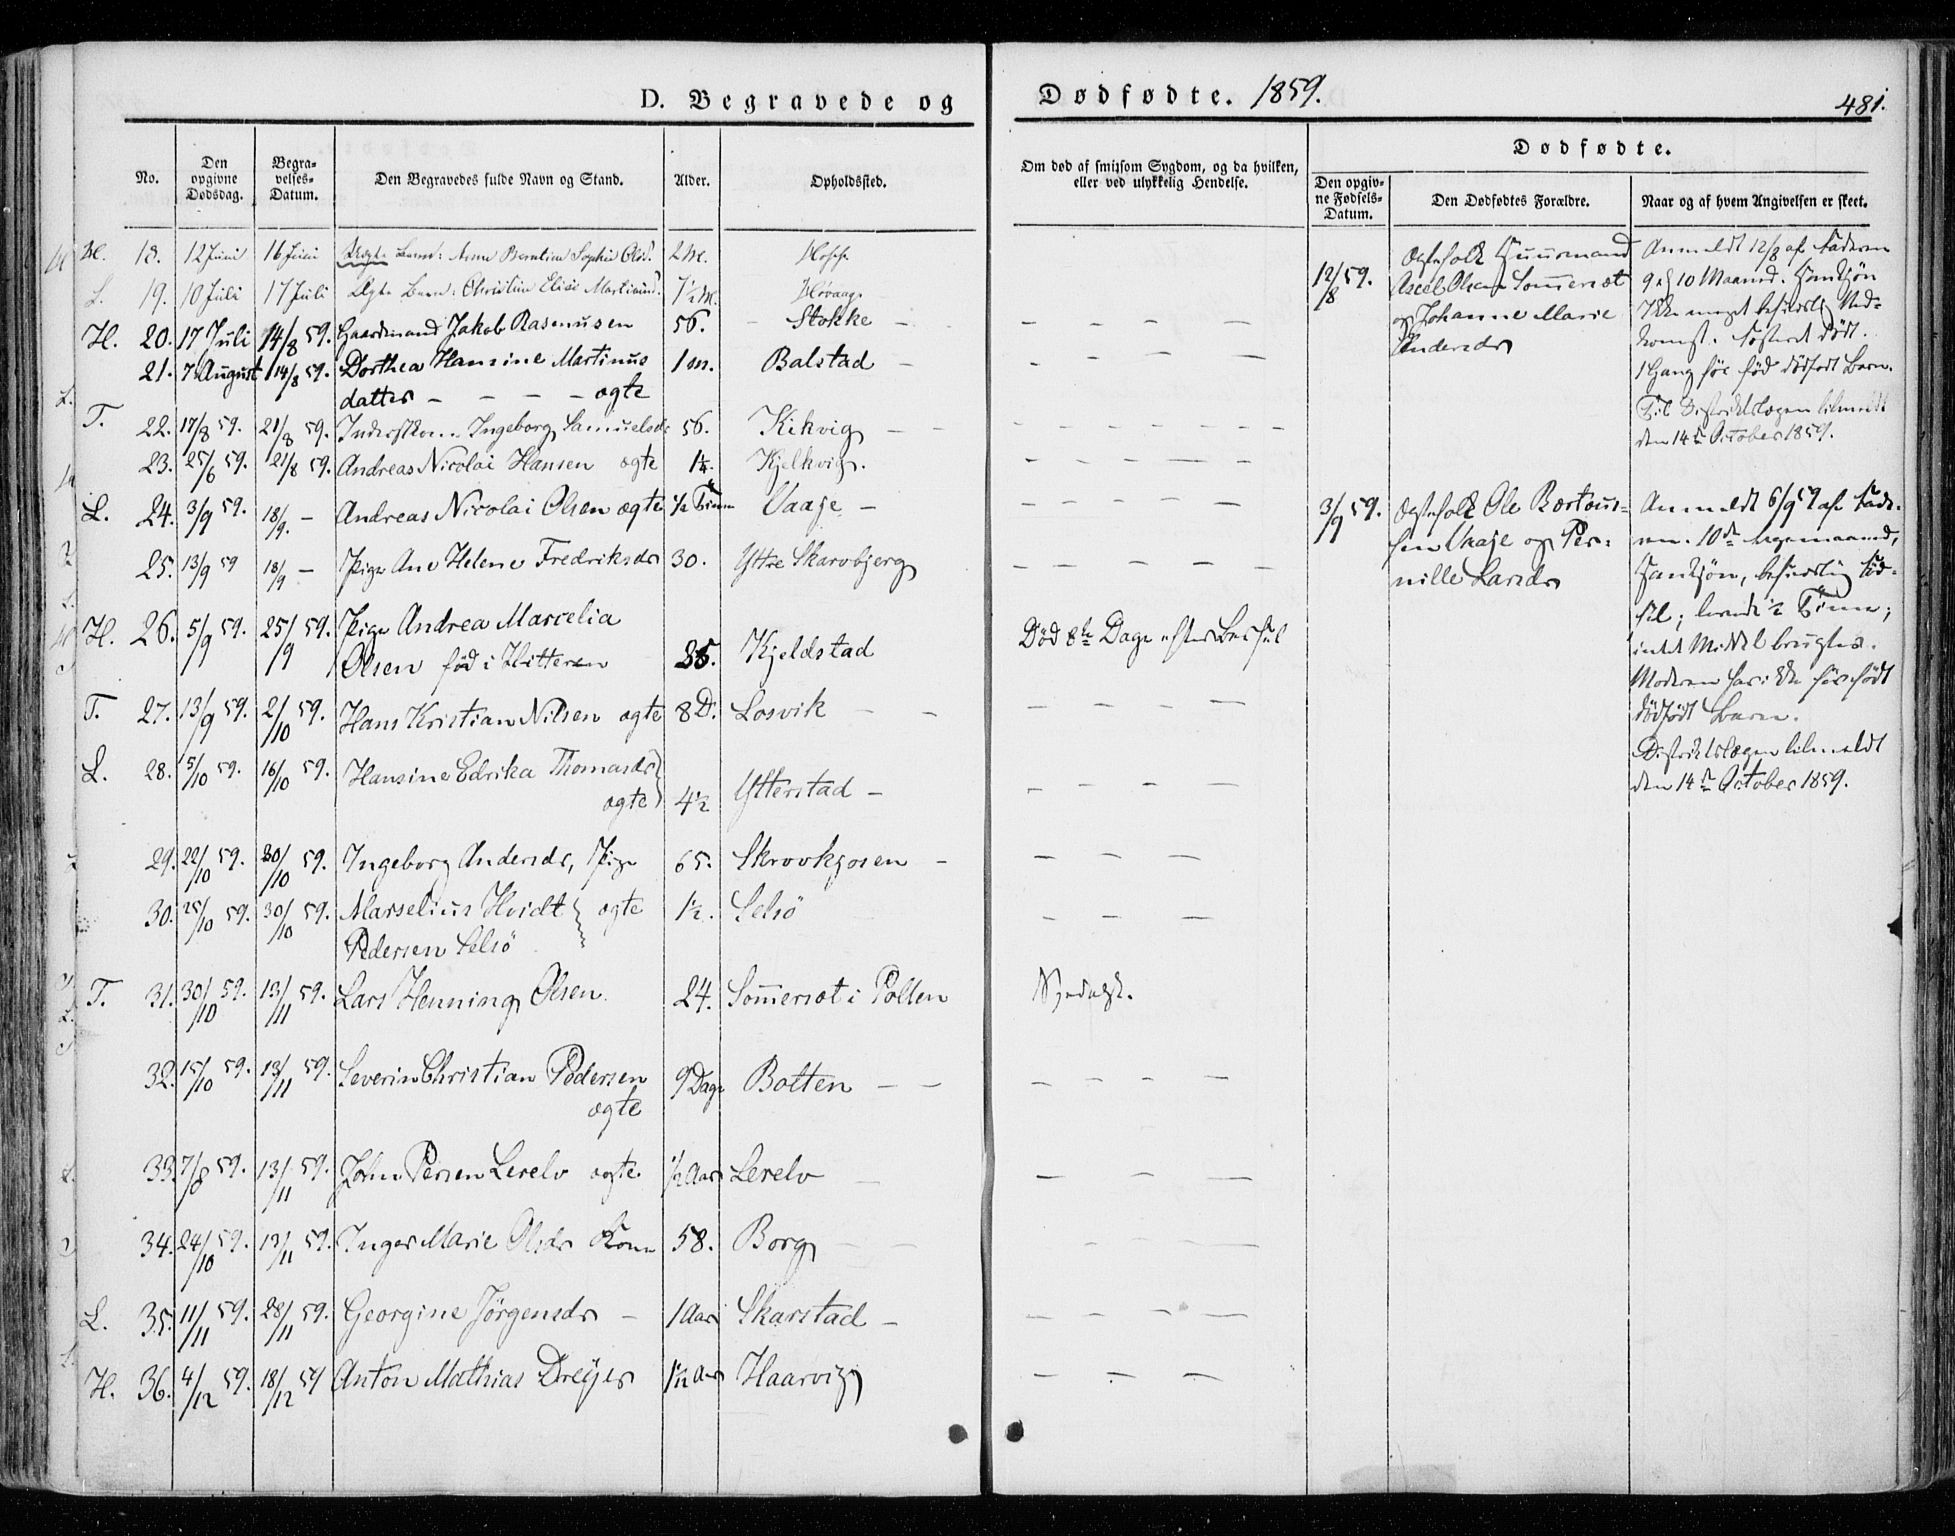 D. Begravede og Dødfødte. 1859.
481.
No.
Den opgivne Dødsdag.
Begravelses-Datum.
Den Begravedes fulde Navn og Stand.
Alder.
Opholdssted.
Om død af smitsom Sygdom, og da hvilken, eller ved ulykkelig Hendelse.
Dødfødte.
Den opgivne Fødsels-Datum.
Den Dødfødtes Forældre.
Naar og af hvem Angivelsen er skeet.
H. 18. 12 Juni 16 Juni Barn: Anne Sophie 2 M.
L. 19. 10 Juli 17 Juli Ægte Barn: Christine Elise 7½ M. Høvaag
H. 20. 17 Juli 14/8 59. Gaardmand Jakob Rasmusen 56. Stokke
21. 7 August 14/8 59. Dorthea Hansine Martinus 1 m. Balstad
datter — — — ægte
T. 22. 17/8 59. 21/8 59. Ingeborg Samuelsdr 56. Kikvig
23. 25/6 59. 21/8 59. Andreas Nicolai Hansen ægte 1¼. Kjelkvig.
L. 24. 3/9 59. 18/9. — Andreas Nicolai Olsen ægte ½ Time Vaaje —
25. 13/9 59 18/9 — Pige Ane Helene Fredriksdr 30. Yttre Skarvbjerg
H. 26. 5/9 59. 25/9 59. Pige Andrea Marcelia
Olsen fød i Hitteren 25. Kjeldstad Død 8te Dage efter Barsel
T. 27. 13/9 59. 2/10 59. Hans Kristian Nilsen ægte 8 D. Losvik
L. 28. 5/10 59. 16/10 59. Hansine Edrika Thomasdr
ægte 4½ Ytterstad —
29. 22/10 59. 30/10 59. Ingeborg Andersdr, Pige 65. Skrovkjosen —
30. 25/10 59. 30/10 59. Marselius Hvidt ægte 1½. Selsö
Pedersen Selsö
T. 31. 30/10 59. 13/11 59. Lars Henning Olsen. 24. Somersæt i Pollen
32. 15/10 59. 13/11 59. Severin Christian Pedersen 9 Dage Botten — —
ægte
33. 7/8 59. 13/11 59. John Persen Lerelv ægte ½ Aar Lerelv
34. 24/10 59. 13/11 59. Inger Marie Olsdr Kone 58. Borg
L. 35. 11/11 59. 28/11 59. Georgine Jörgensdr — 1 Aar Skarstad —
H. 36. 4/12 59. 18/12 59 Anton Mathias Dreyer 1½ Aar Haarvig
12/8 59.
Ægtefolk Huusmand
Axel Olsen Somersæt
og Johanne Marie
Andersdr
Anmeldt 12/8 af Faderen
9 à 10 Maaned. Hankjön
Ikke meget besværlig Ned-
komst. Fosteret dödt.
1 Gang för fød dödfødt Barn.
Til Distriktslægen tilmeldt
den 14de October 1859.
3/9 59.
Ægtefolk Ole Bertous-
sen Vaaje og Per-
nille Larsdr
Anmeldt 6/9 59 af Fade-
ren. 10de Maaned,
Hankjön, besværlig Föd-
sel; levede ½ Time;
intet Middel brugtes.
Moderen har ikke för födt
dödfødt Barn.
Distriktslægen tilmeldt
den 14de October 1859.